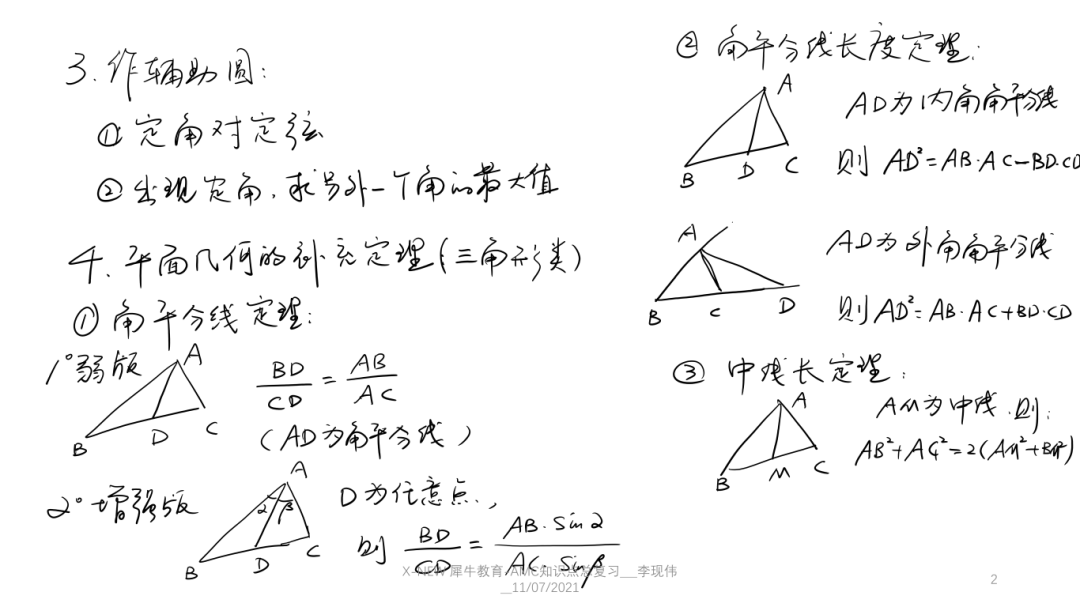 3. 作辅助圆:
① 定角对定弦
② 出现定角, 求另外一个角的最大值
4. 平面几何的补充定理(三角形类)
① 角平分线定理:
1° 弱版
A
B
D
C
BD/CD = AB/AC
(AD为角平分线)
2° 增强版
A
α
β
B
D
C
D为任意点,
则 BD/CD = AB·Sinα/AC·Sinβ
② 角平分线长度定理:
A
B
D
C
AD为内角角平分线
则 AD²=AB·AC-BD·CD
A
B
C
D
AD为外角角平分线
则 AD²=AB·AC+BD·CD
③ 中线长定理:
A
B
M
C
AM为中线.则:
AB²+AC²=2(AM²+BM²)
X-NEW 犀牛教育-AMC知识点总复习__李现伟
__11/07/2021
2